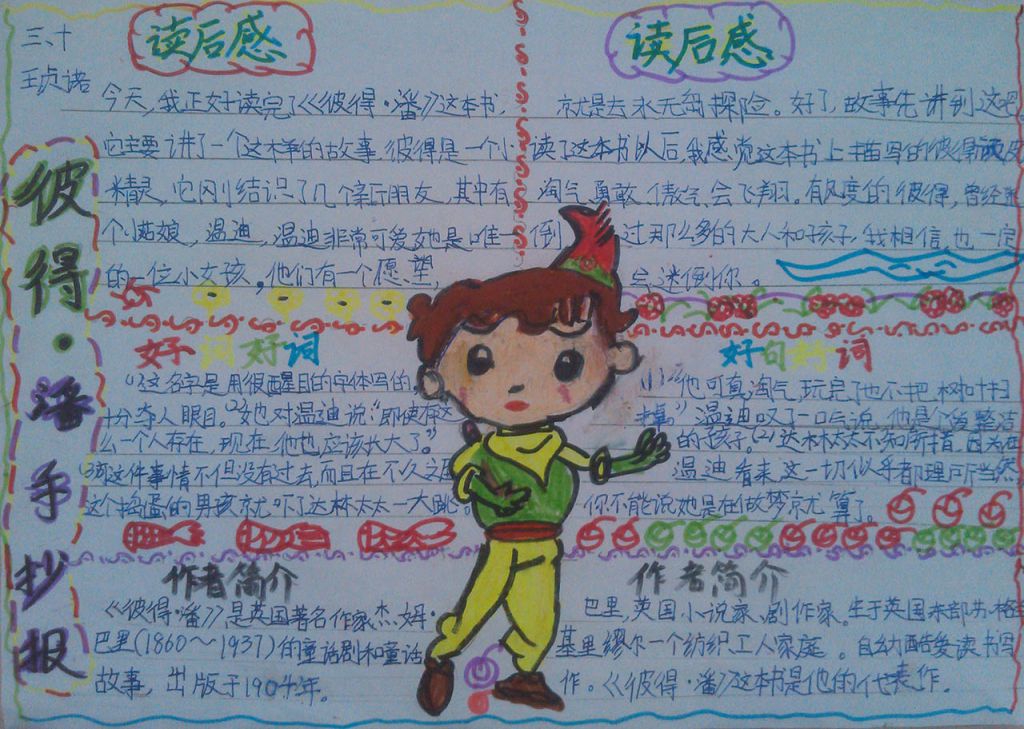 三、十
王贞诺
彼得·潘手抄报
读后感
今天,我正好读完了《彼得·潘》这本书,
它主要讲了一个这样的故事.彼得是一个小
精灵,它刚结识了几个新朋友,其中有
个姑娘,温迪,温迪非常可爱她是唯一
的一位小女孩。他们有一个愿望,
读后感
就是去永无岛探险。好了,故事先讲到这吧
读了这本书以后,我感觉这本书上描写的彼得
淘气、勇敢、傲气、会飞翔。有风度的彼得,曾经迷
倒过那么多的大人和孩子,我相信也一定
会迷倒你。
好词好词
"(1)这名字是用很醒目的字体写的,
十分夺人眼目。(2)她对温迪说:"即使有这
么一个人存在,现在,他也应该长大了。"
(3)那这件事情不但没有过去,而且在不久之后
这个捣蛋的男孩就吓了达林太太一大跳。
好句好词
(1)"他可真淘气,玩完了也不把树叶扫
掉。"温迪叹了一口气说,他是个爱整洁
的孩子。(2)达林太太不知所措,因为在
温迪看来,这一切似乎都理所当然
你不能说她是在做梦京尤算了。
作者简介
《彼得·潘》是英国著名作家杰·姆·
巴里(1860～1937)的童话剧和童话
故事,出版于1904年。
作者简介
巴里,英国小说家、剧作家。生于英国东部苏格
基里缪尔一个纺织工人家庭。自幼酷爱读书写
作。《彼得·潘》这本书是他的代表作.